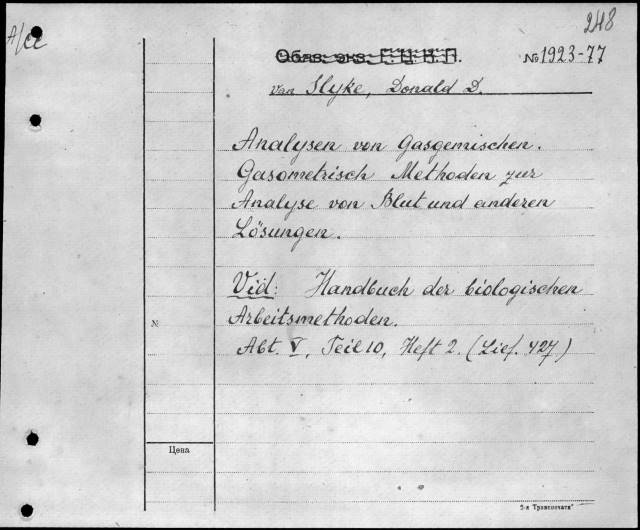 248
A/ce
Обяз. экз. Г.Ц.К.П. № 1923-77
van Slyke, Donald D.
Analysen von Gasgemischen.
Gasometrisch Methoden zur
Analyse von Blut und anderen
Lösungen.
Vid: Handbuch der biologischen
Arbeitsmethoden.
№
Abt. V, Teil 10, Heft 2. (Lief. 427)
Цена
2-я Транспечать